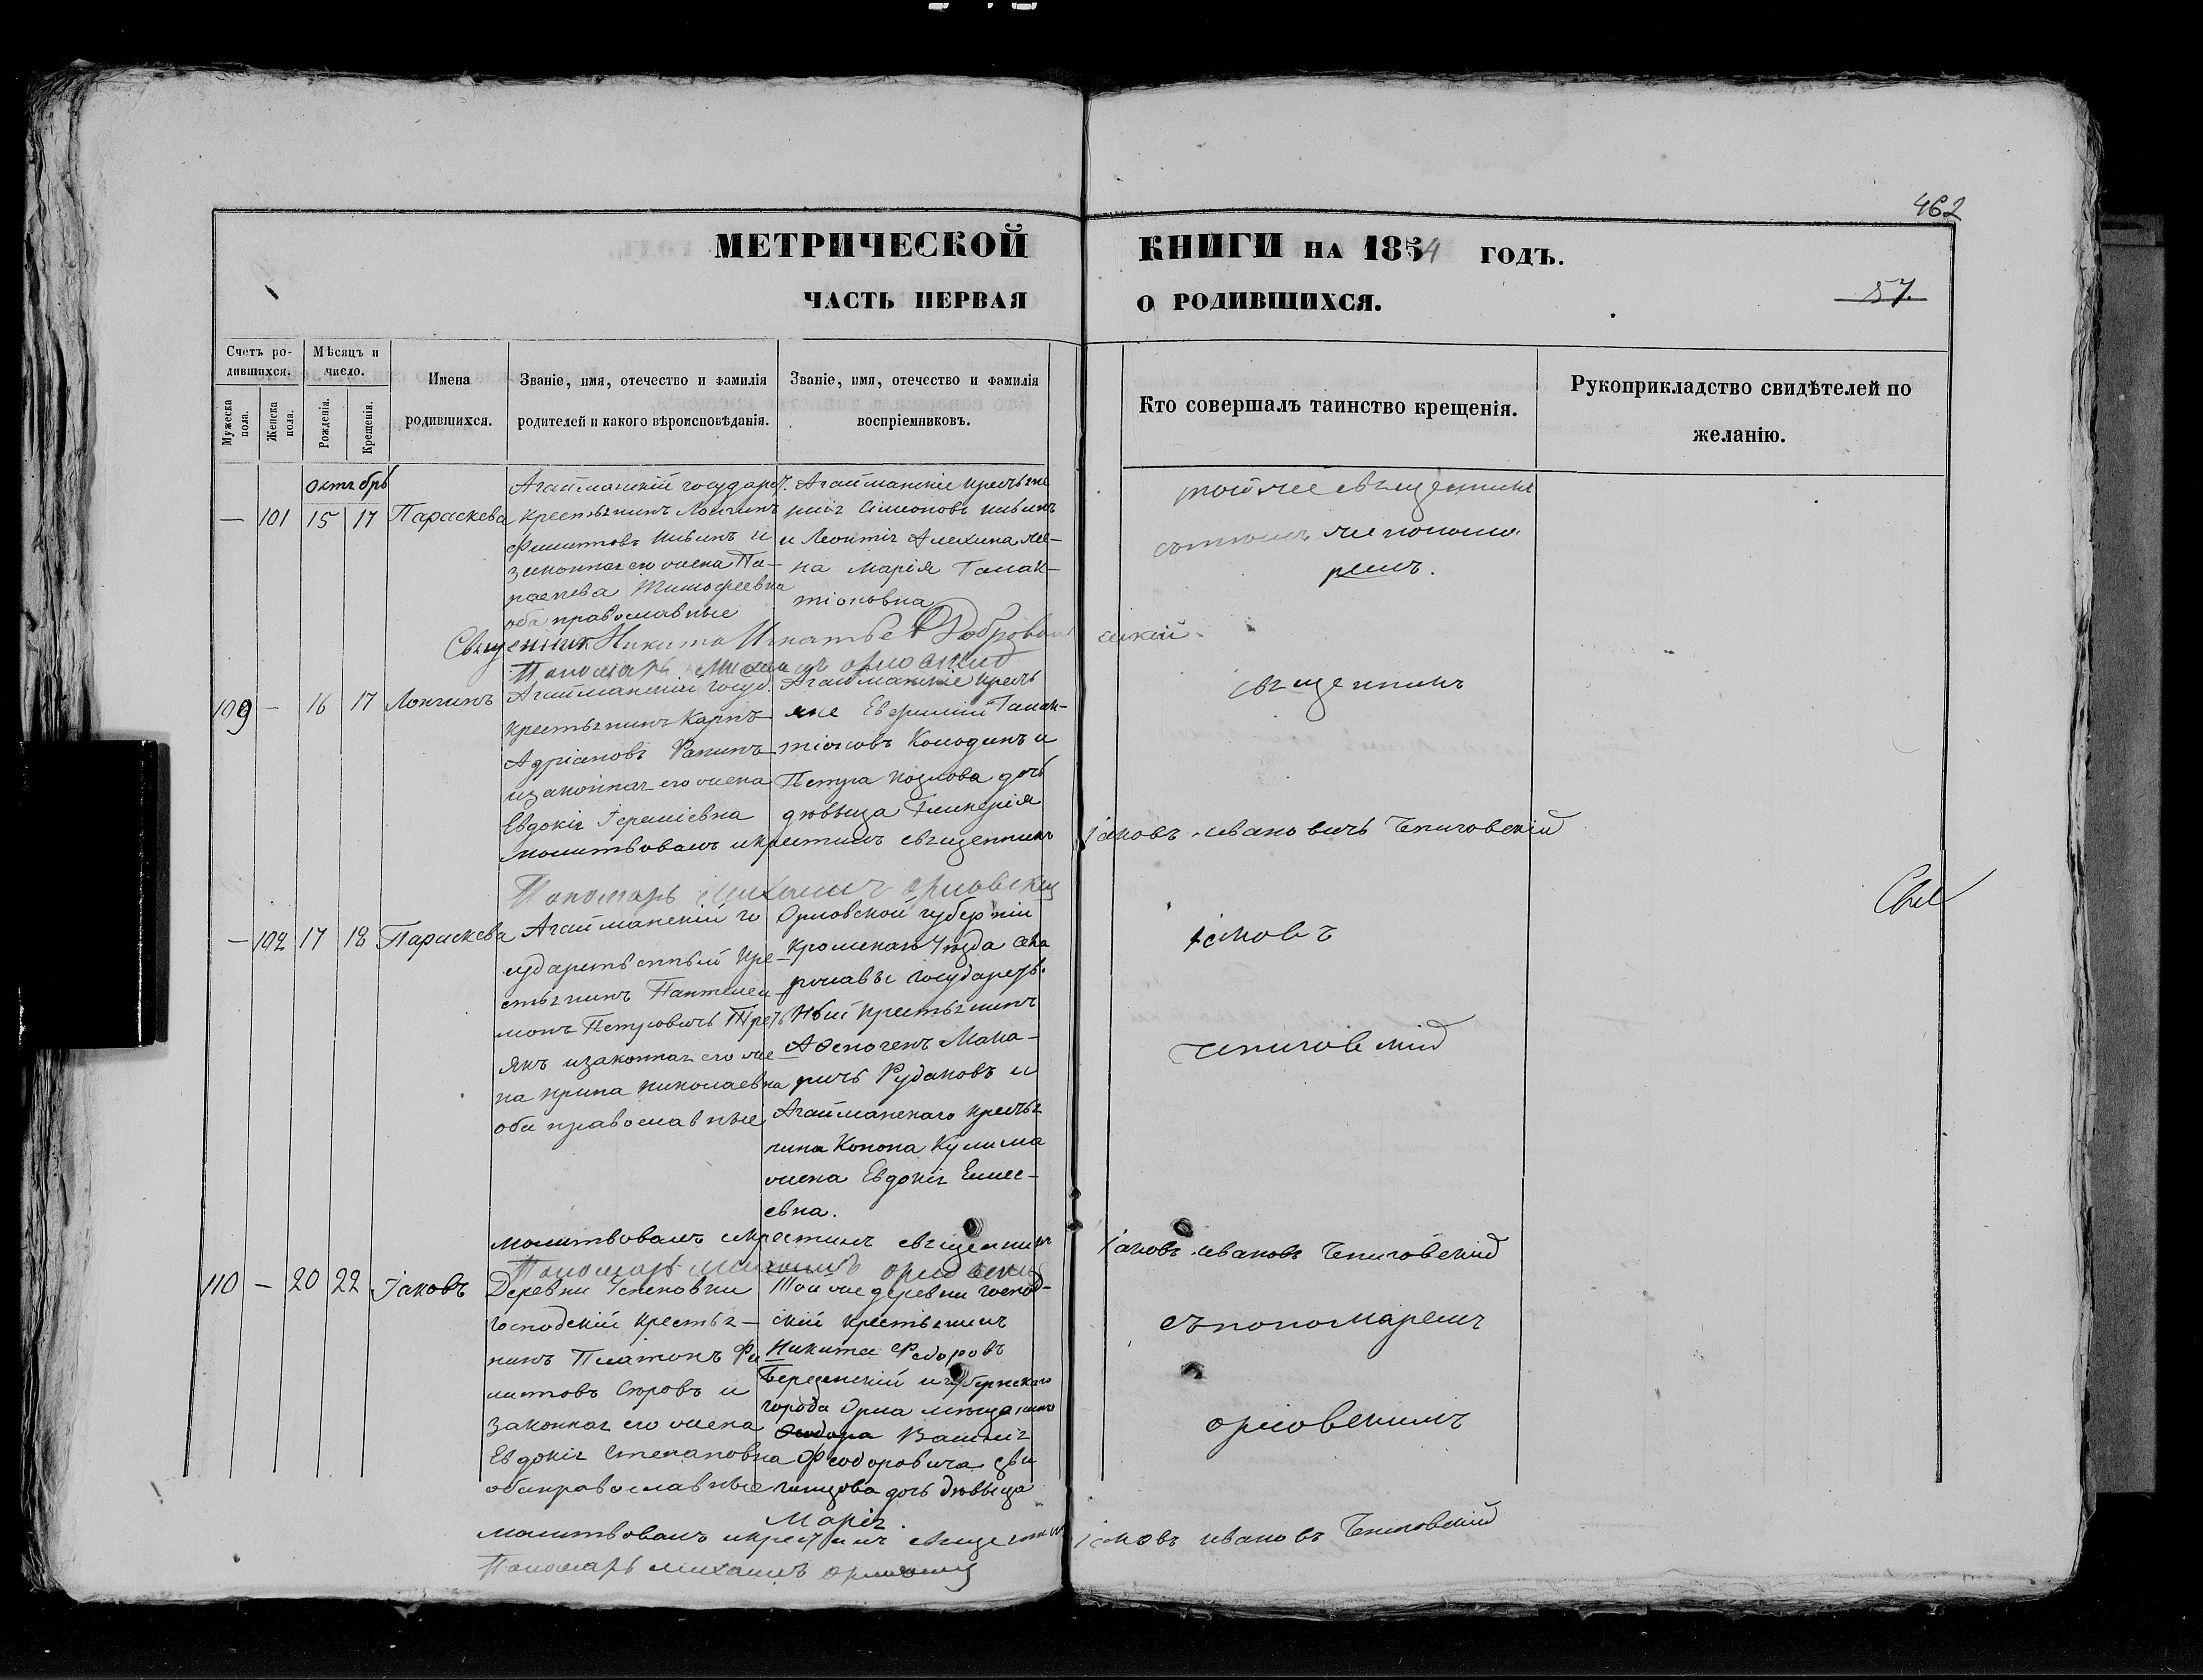 462
МЕТРИЧЕСКОЙ КНИГИ НА 1854 ГОДЪ.
ЧАСТЬ ПЕРВАЯ О РОДИВШИХСЯ.
57.
Счетъ родившихся.
Мужеска пола.
Женска пола.
Мѣсяцъ и число.
Рожденія.
Крещенія.
Имена родившихся.
Званіе, имя, отечество и фамилія родителей и какого вѣроисповѣданія.
Званіе, имя, отечество и фамилія воспріемниковъ.
Кто совершалъ таинство крещенія.
Рукоприкладство свидѣтелей по желанію.
октябрь
— 101 15 17 Параскева
Агайманскій государст.
крестьянинъ Лонгинъ
и
законная его жена Па-
раскева Тимофеевна
оба православные
Агайманскіе крестьяне
Симеоновъ
и Леонтія Алехина же-
на Марія Галак-
тіоновна
тотъ же священникъ
съ темъ же понома
ремъ.
Священник Никита Игнатьев Добровольскій
Пономарь Михаилъ Орловскій
109 — 16 17 Лонгинъ
Агайманскій госуд.
крестьянинъ Карпъ
Адріановъ
изаконная его жена
Евдокія Іереміевна
Агайманскіе кресть
яне Евфимій Галак-
тіоновъ Колодинъ и
Петра Козлова дочь
дѣвыца Гликерія
священникъ
молитвовалъ икрестилъ священникъ Іаковъ Ивановичь Чепиговскій
Пономарь Михаилъ Орловскій
— 102 17 18 Параскева
Агайманскій го
сударственный кре-
стьянинъ Пантелеи
монъ Петровичь Треть
якъ изаконная его же
на Ирина Николаевна
оба православные
Орловской губерніи
Кромскаго Уезда села
государств.
ный крестьянинъ
Афеногенъ Мака-
ричь Рудаковъ и
Агайманскаго кресть
нина Конона Кулима
жена Евдокія Елисе-
евна.
Іаковъ
Чепиговскій
молитвовалъ икрестилъ священникъ Іаковъ Ивановъ Чепиговскій
Пономарь Михаилъ Орловскій
110 — 20 22 Іаковъ
Деревни Успеновки
господскій крестья-
нинъ Платонъ Фи
листовъ Серовъ и
законная его жена
Евдокія Степановна
оба православные
Той же деревни господ-
скій крестьянинъ
Никита Федоровъ
и губернскаго
города Орла мещанина
Василія
Феодоровича
дочь дѣвыца
Марія.
съпономаремъ
орловскимъ
молитвовалъ икрестилъ священник Іаковъ Ивановъ Чепиговскій
Пономарь Михаилъ Орловскій